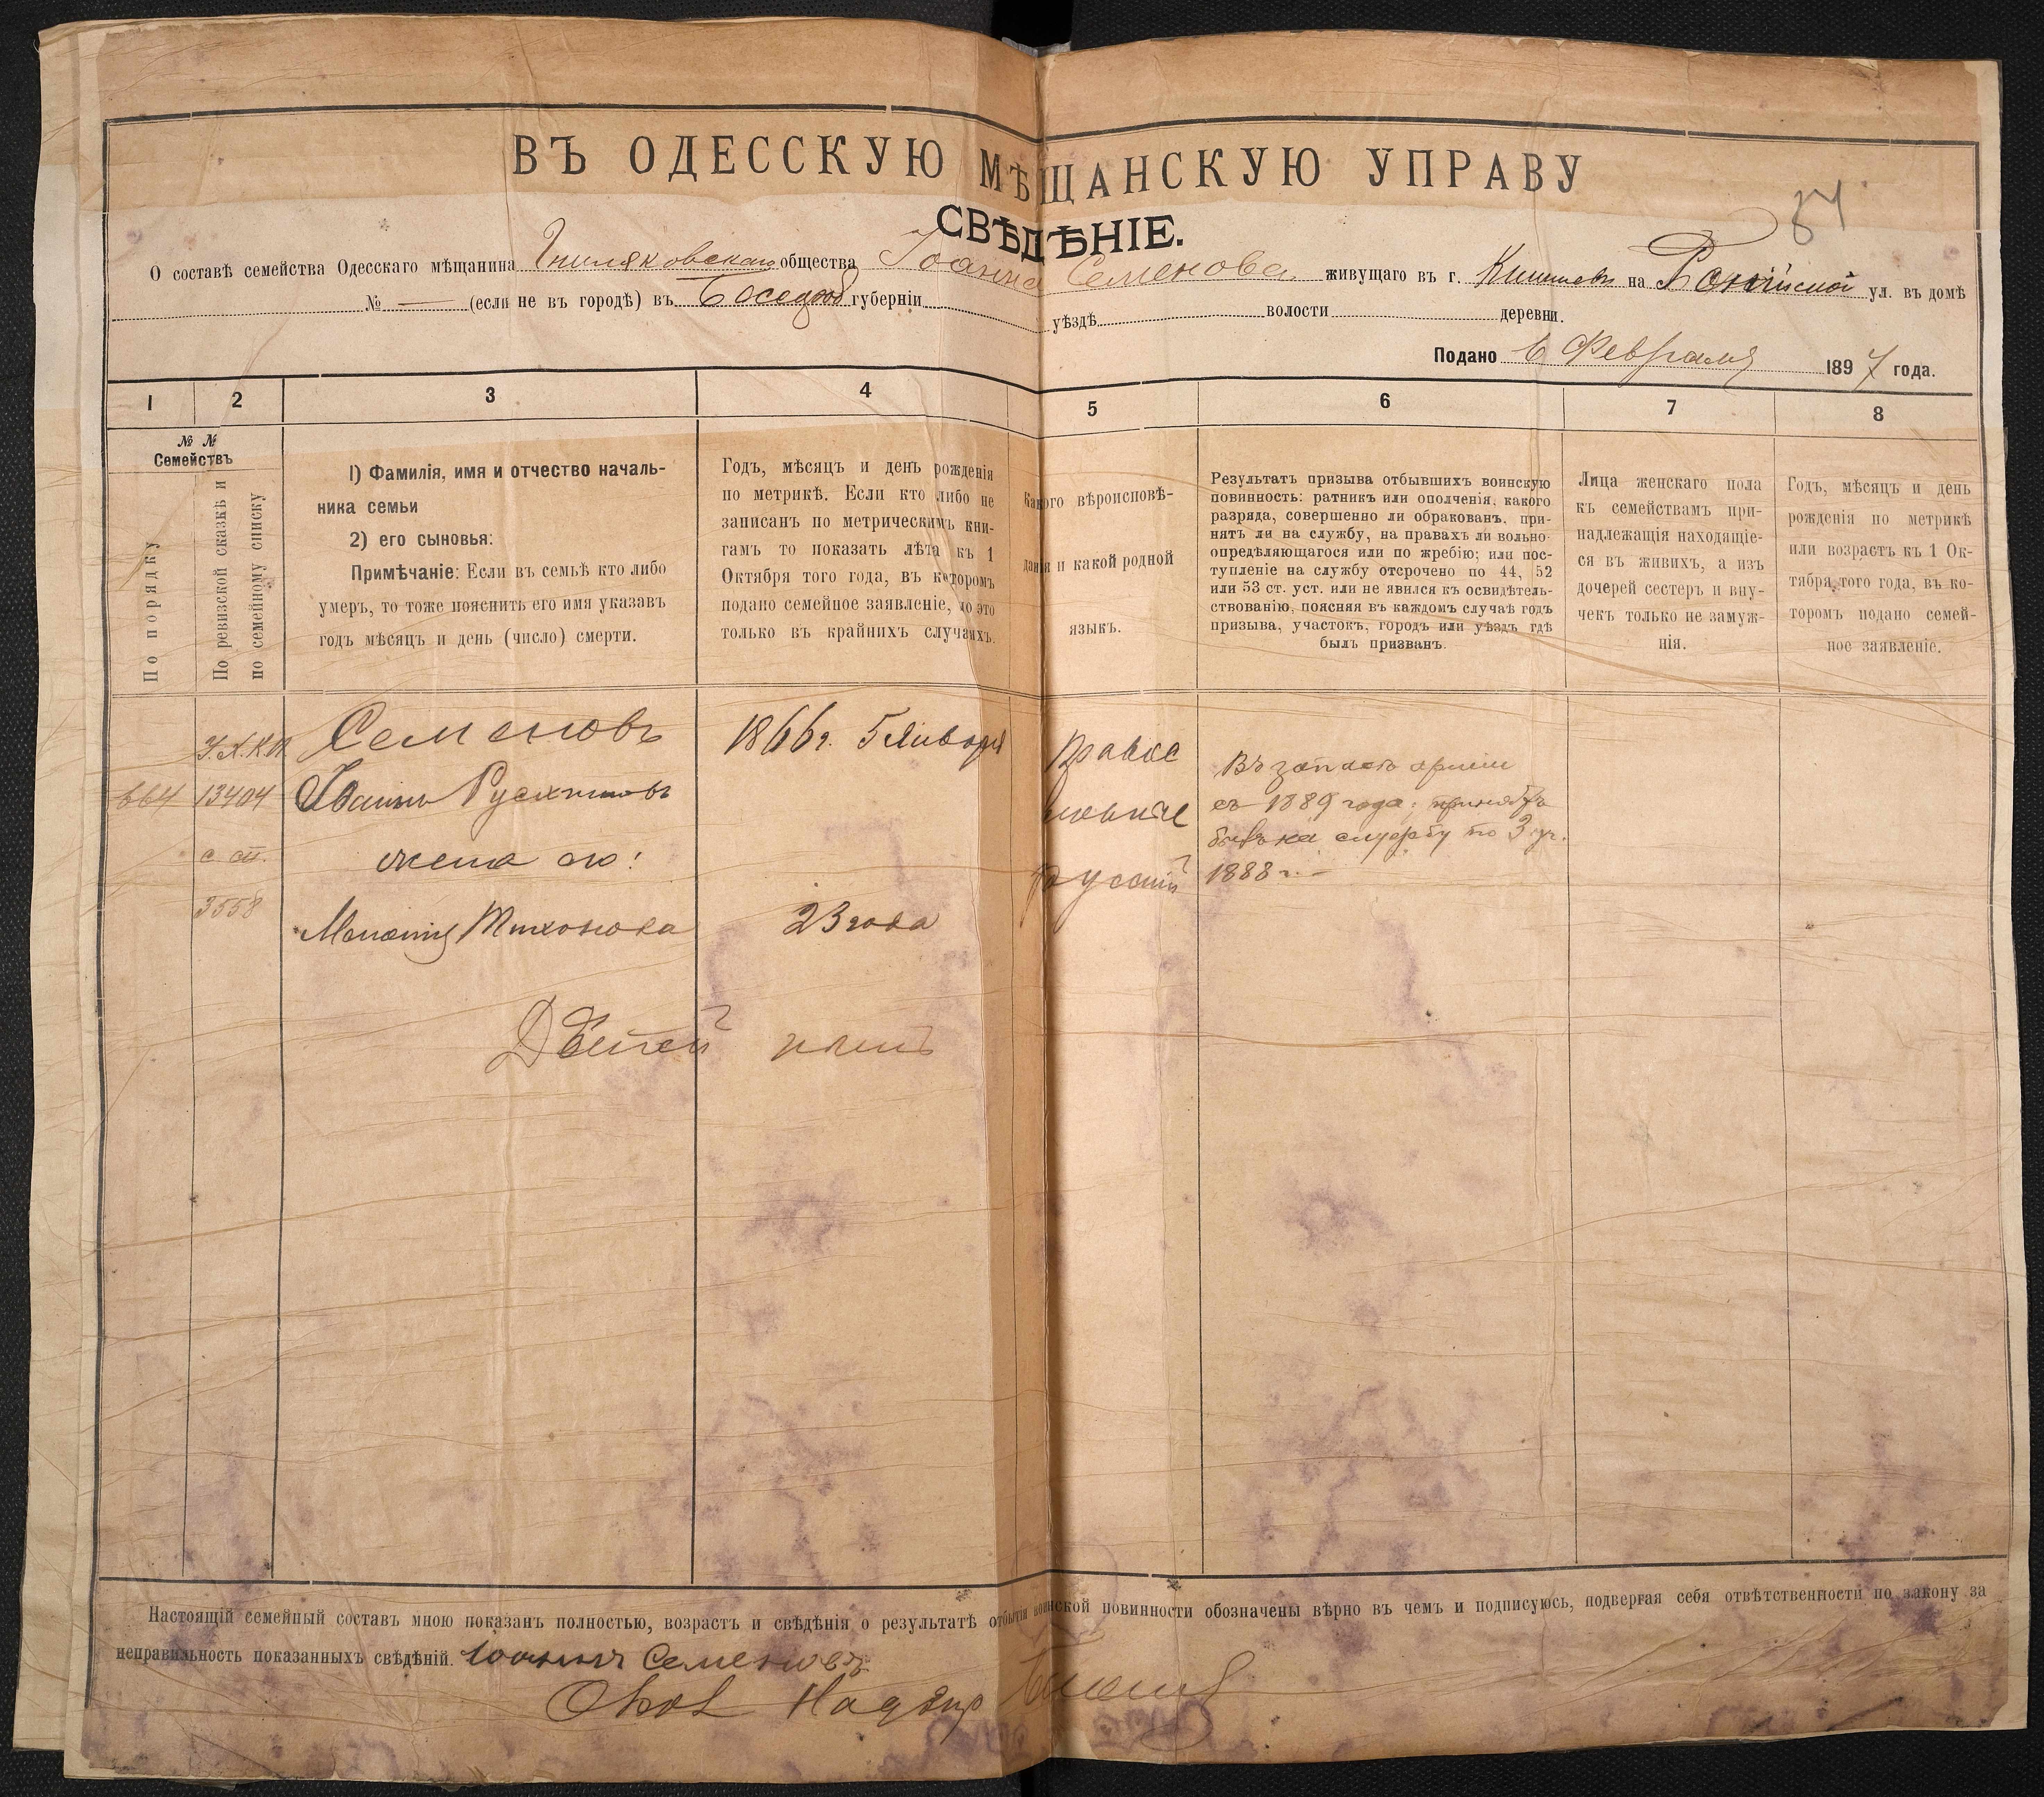 ВЪ ОДЕССКУЮ МѢЩАНСКУЮ УПРАВУ
СВѢДѢНІЕ.
84
О составѣ семейства Одесскаго мѣщанина Гниляковскаго общества Іоанна Семенова живущаго въ г. Кишиневѣ на ул. въ домѣ
№ — (если не въ городѣ) въ губерніи уѣздѣ волости деревни.
Подано 6 Февраля 1897 года.
1 2 3 4 5 6 7 8
№ № Семействъ
По порядку
По ревизской сказкѣ и
по семейному списку
1) Фамилія, имя и отчество началь-
ника семьи
2) его сыновья:
Примѣчаніе: Если въ семьѣ кто либо
умеръ, то тоже пояснить его имя указавъ
годъ мѣсяцъ и день (число) смерти.
Годъ, мѣсяцъ и день рожденія
по метрикѣ. Если кто либо не
записанъ по метрическимъ кни-
гамъ то показать лѣта къ 1
Октября того года, въ которомъ
подано семейное заявленіе, но это
только въ крайнихъ случаяхъ.
Какого вѣроисповѣ-
данія и какой родной
языкъ.
Результатъ призыва отбывшихъ воинскую
повинность: ратникъ или ополченія, какого
разряда, совершенно ли обракованъ, при-
нятъ ли на службу, на правахъ ли вольно-
опредѣляющагося или по жребію; или пос-
тупленіе на службу отсрочено по 44, 52
или 53 ст. уст. или не явился къ освидѣтель-
ствованію, поясняя въ каждомъ случаѣ годъ
призыва, участокъ, городъ или уѣздъ гдѣ
былъ призванъ.
Лица женскаго пола
къ семействамъ при-
надлежащія находящіе-
ся въ живихъ, а изъ
дочерей сестеръ и вну-
чекъ только не замуж-
нія.
Годъ, мѣсяцъ и день
рожденія по метрикѣ
или возрастъ къ 1 Ок-
тября того года, въ ко-
торомъ подано семей-
ное заявленіе.
Семеновъ 1866 г. 5 Января Правос
664 13404 Іоаннъ лавное
с сп. жена его: Русскій
3558
Тихонова 23 года
Въ запасѣ арміи
съ 1889 года; принятъ
былъ на службу по 3 уч.
1888 г. —
Дѣтей нѣтъ
Настоящій семейный составъ мною показанъ полностью, возрастъ и свѣдѣнія о результатѣ отбытія воинской повинности обозначены вѣрно въ чемъ и подписуюсь, подвергая себя отвѣтственности по закону за
неправильность показанныхъ свѣдѣній. Іоаннъ Семеновъ